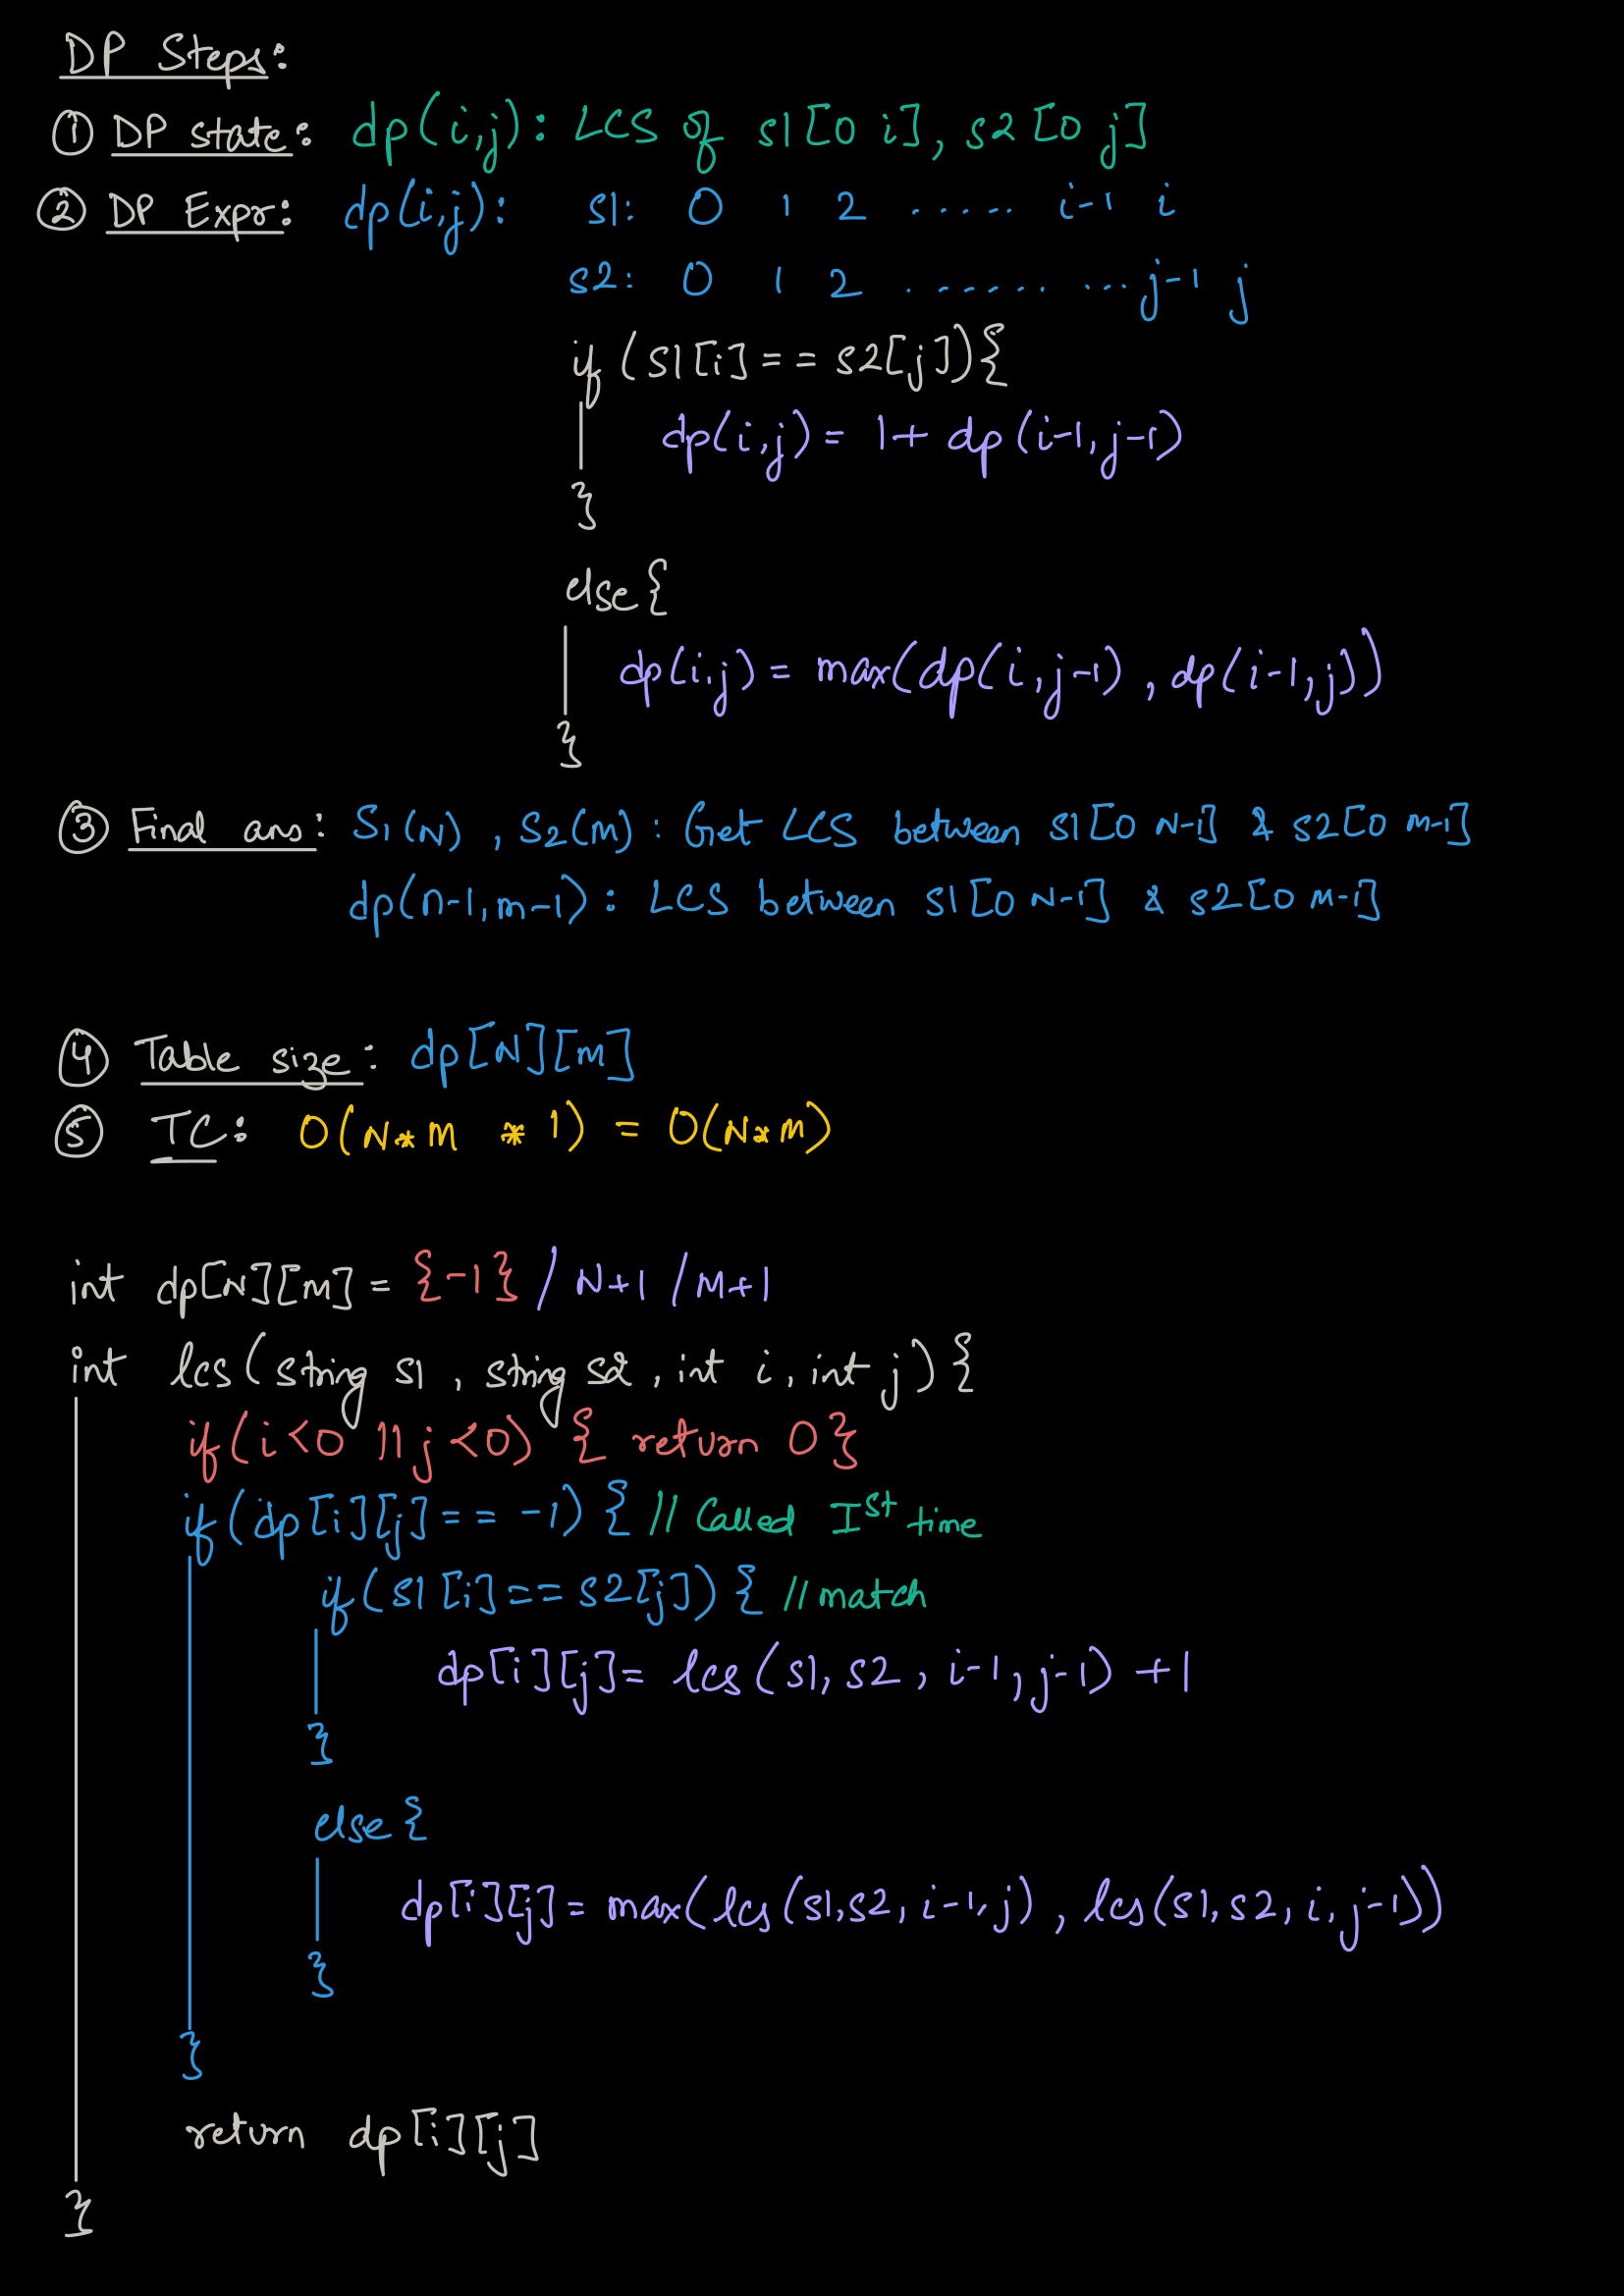 DP Steps:
① DP state: dp(i,j): LCS of s1[0 i], s2[0 j]
② DP Expr: dp(i,j): s1: 0 1 2 ..... i-1 i
s2: 0 1 2 ......... j-1 j
if (s1[i] == s2[j]){
dp(i,j) = 1+ dp(i-1,j-1)
}
else{
dp(i,j) = max(dp(i,j-1), dp(i-1,j))
}
③ Final ans: S1(N), S2(M): Get LCS between s1[0 N-1] & s2[0 M-1]
dp(n-1,m-1): LCS between s1[0 N-1] & s2[0 M-1]
④ Table size: dp[N][M]
⑤ TC: O(N*M * 1) = O(N*M)
int dp[N][M] = {-1} / N+1 / M+1
int lcs(string s1, string s2, int i, int j){
if(i<0 || j<0) { return 0}
if(dp[i][j] == -1) { // Called Ist time
if(s1[i] == s2[j]) { // match
dp[i][j] = lcs(s1, s2, i-1, j-1) +1
}
else{
dp[i][j] = max(lcs(s1,s2, i-1, j), lcs(s1,s2, i, j-1))
}
}
return dp[i][j]
}